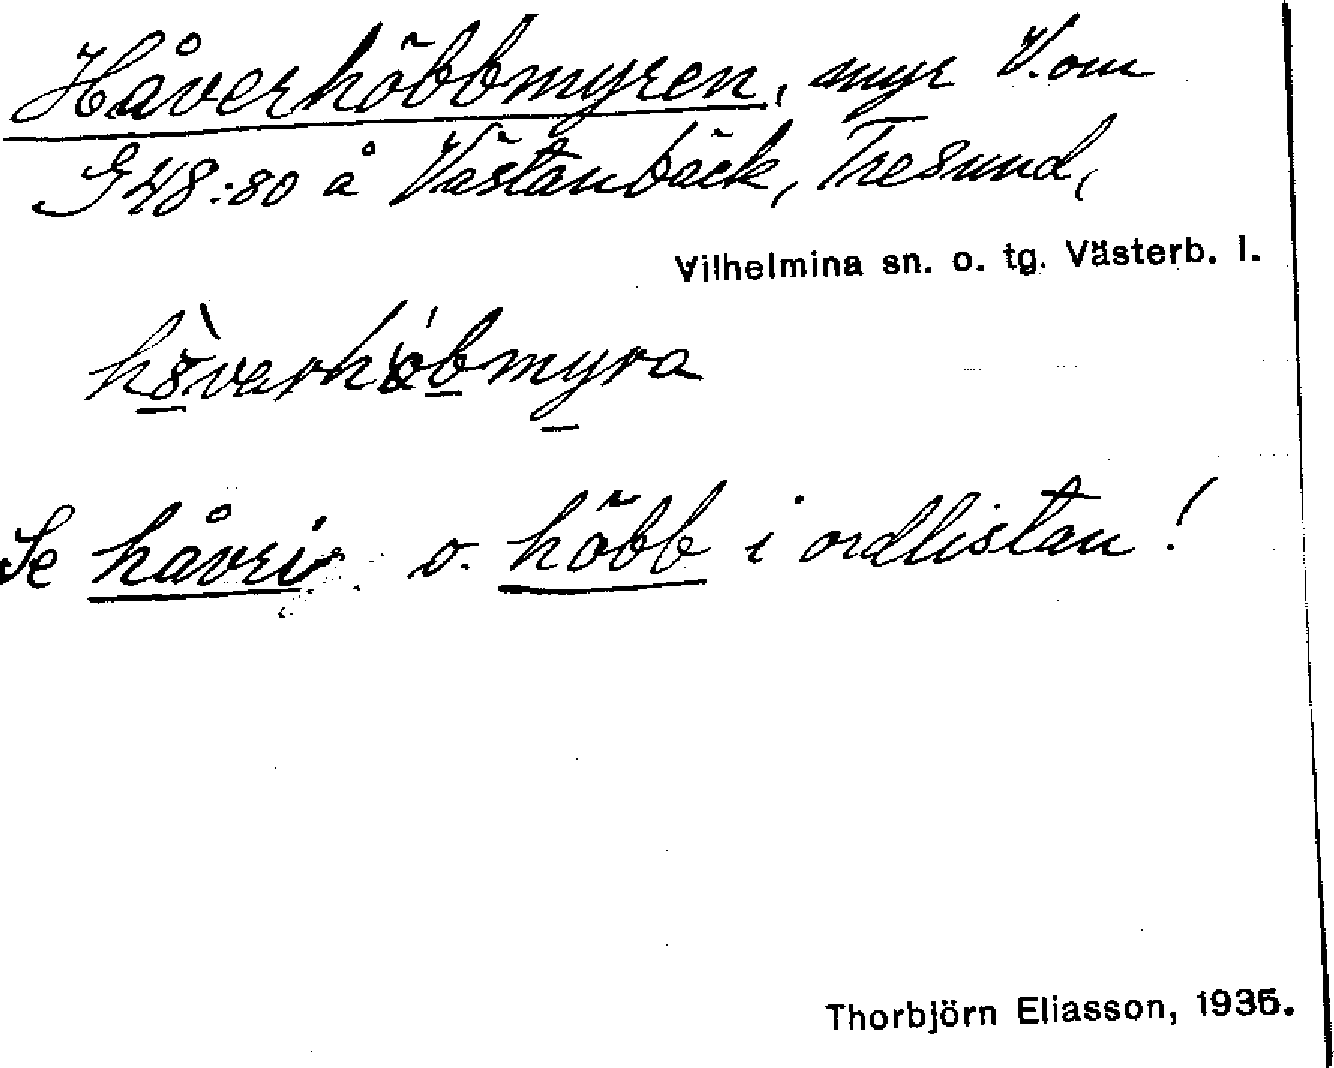 Håverhöbbmyren, myr V. om
G 48:80 å Västanbäck, Tresund,
Vilhelmina sn. o. tg. Västerb. l.
håverhöbmyra
Se håvri o. höbb i ordlistan!
Thorbjörn Eliasson, 1936.